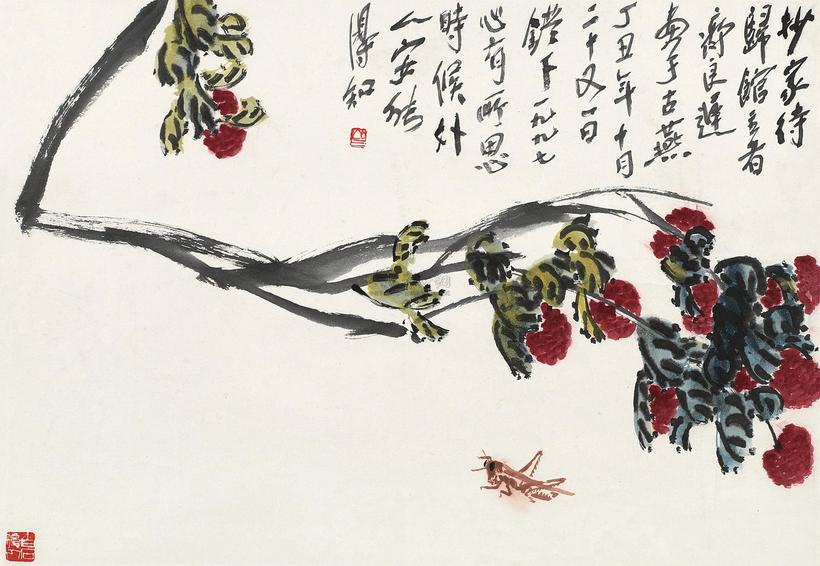 抄家待
歸館主者
齊良遲
畫于古燕
丁丑年十月
二十又一日
鐙下一九九七
心有所思
時候外
人安能
得知